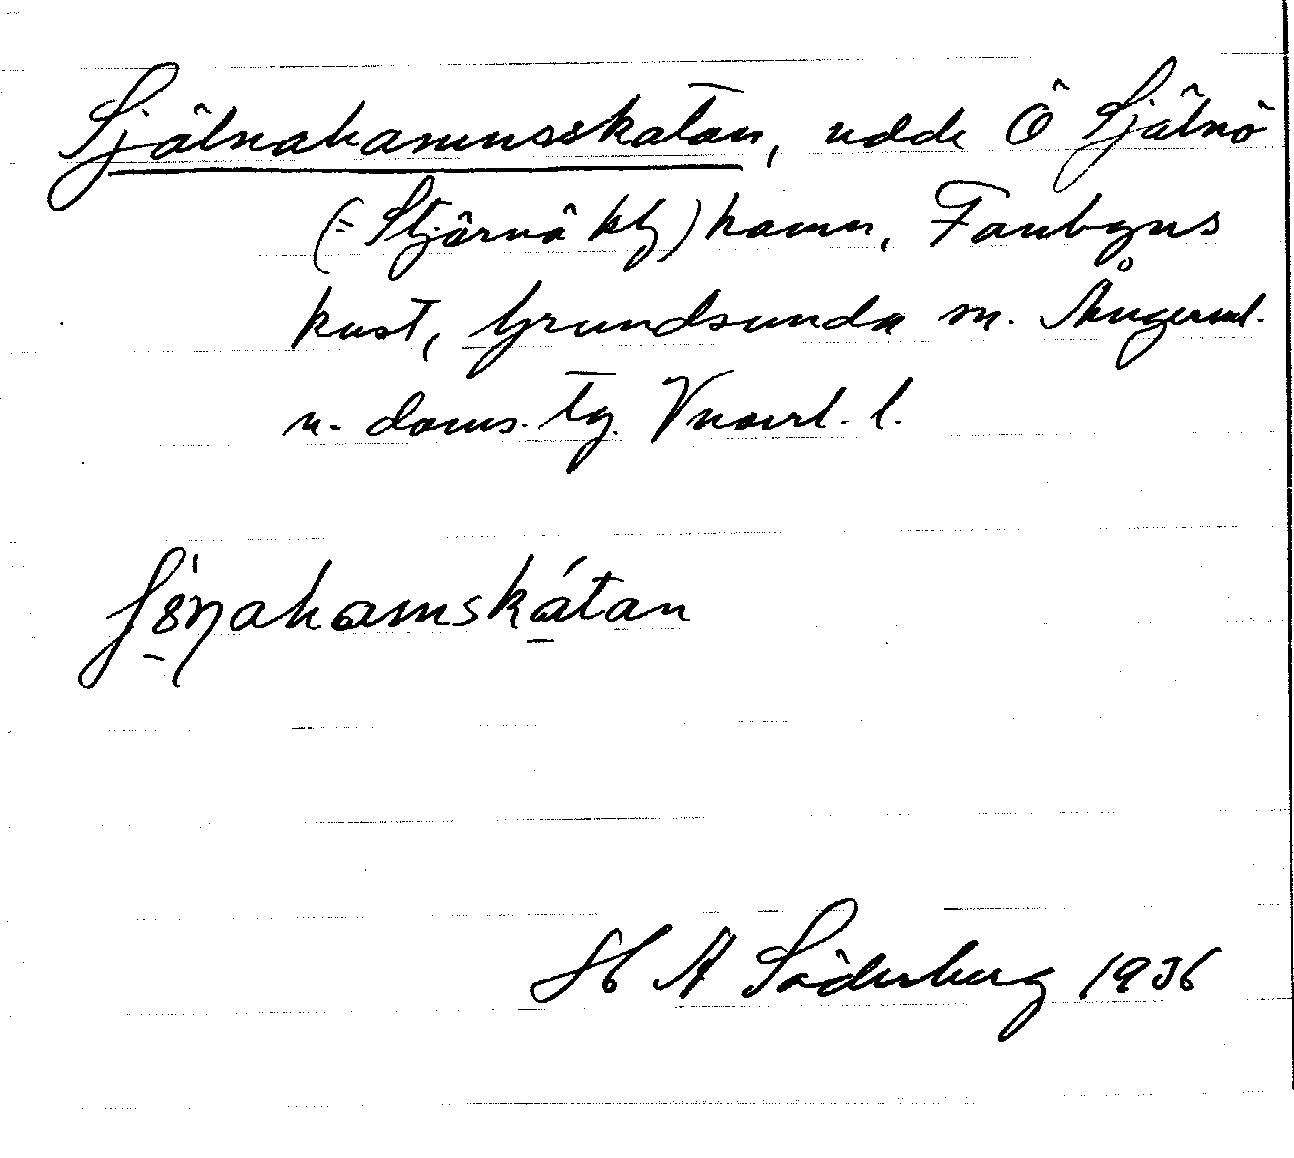 Själnahamnsskatan, udde Ö Själnö
(= Stjärnö kb) hamn, Fanbyns
kust, Grundsunda sn. Ångerml.
n. doms. tg. Vnorrl. l.
hamskátan
H A Söderberg 1936